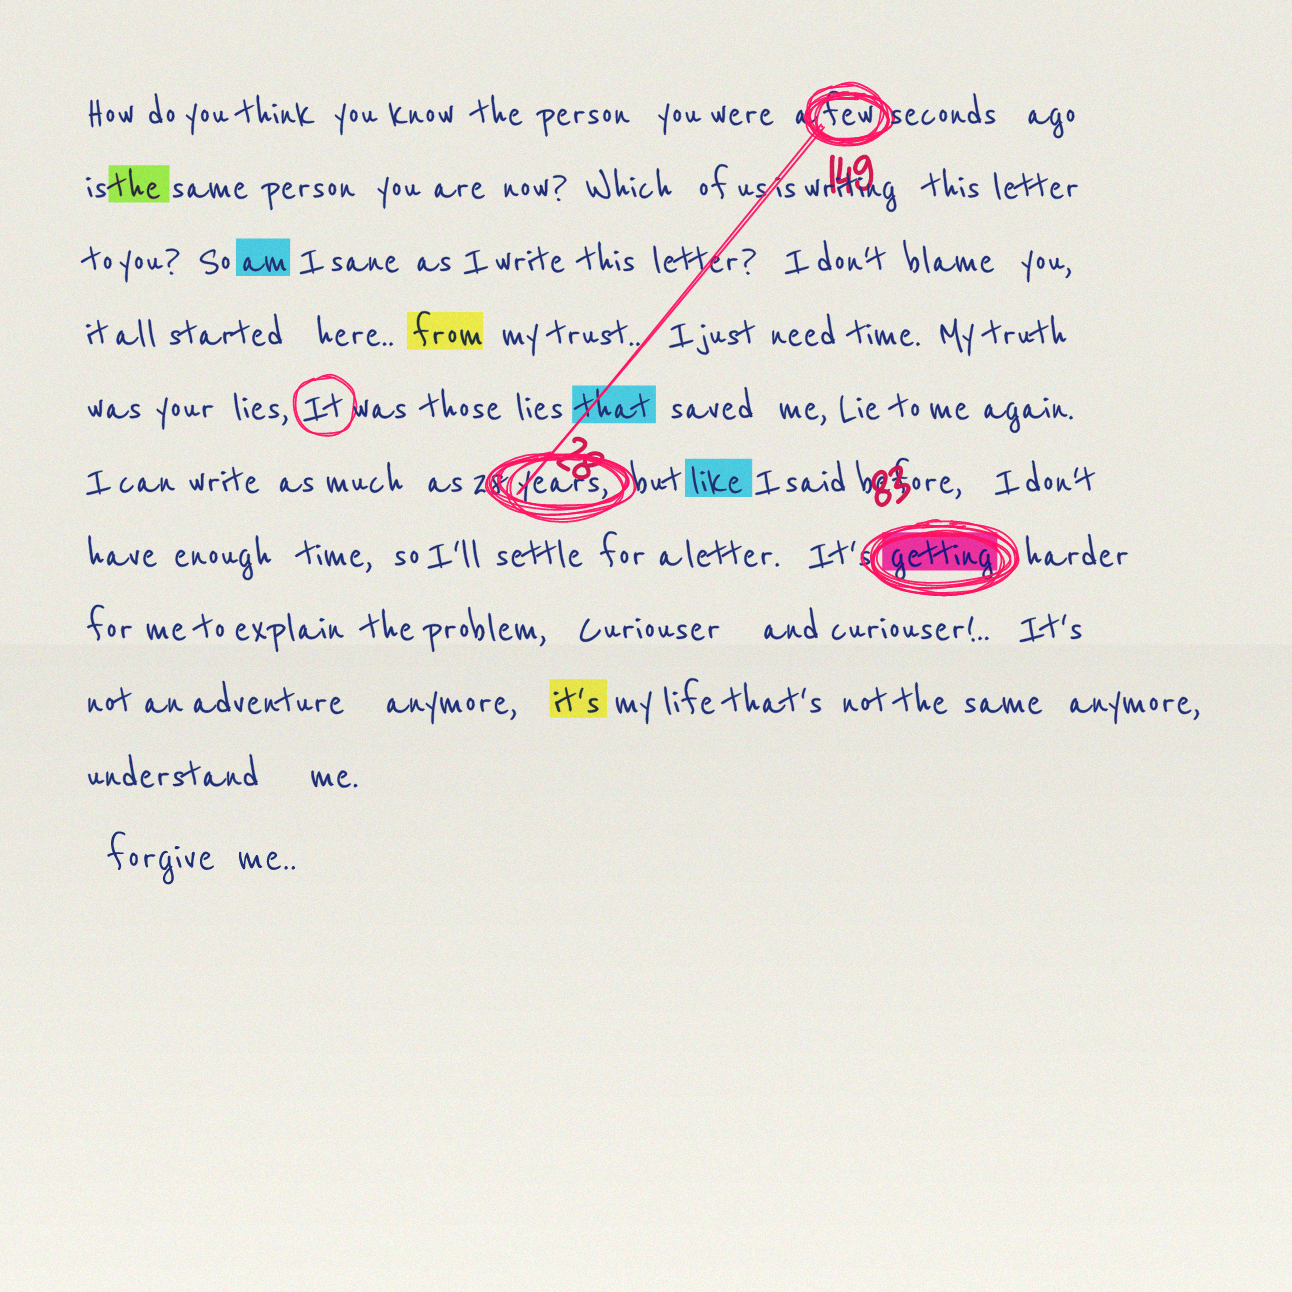 How do you think you know the person you were a few seconds ago
149
is the same person you are now? Which of us is writing this letter
to you? So am I sane as I write this letter? I don't blame you,
it all started here.. from my trust.. I just need time. My truth
was your lies, It was those lies that saved me, Lie to me again.
28
83
I can write as much as 28 years, but like I said before, I don't
have enough time, so I'll settle for a letter. It's getting harder
for me to explain the problem, Curiouser and curiouser!.. It's
not an adventure anymore, it's my life that's not the same anymore,
understand me.
forgive me..